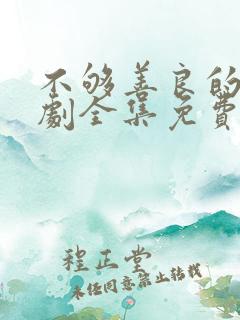 不够善良的
劇全集免費
程正堂
未经同意禁止转载